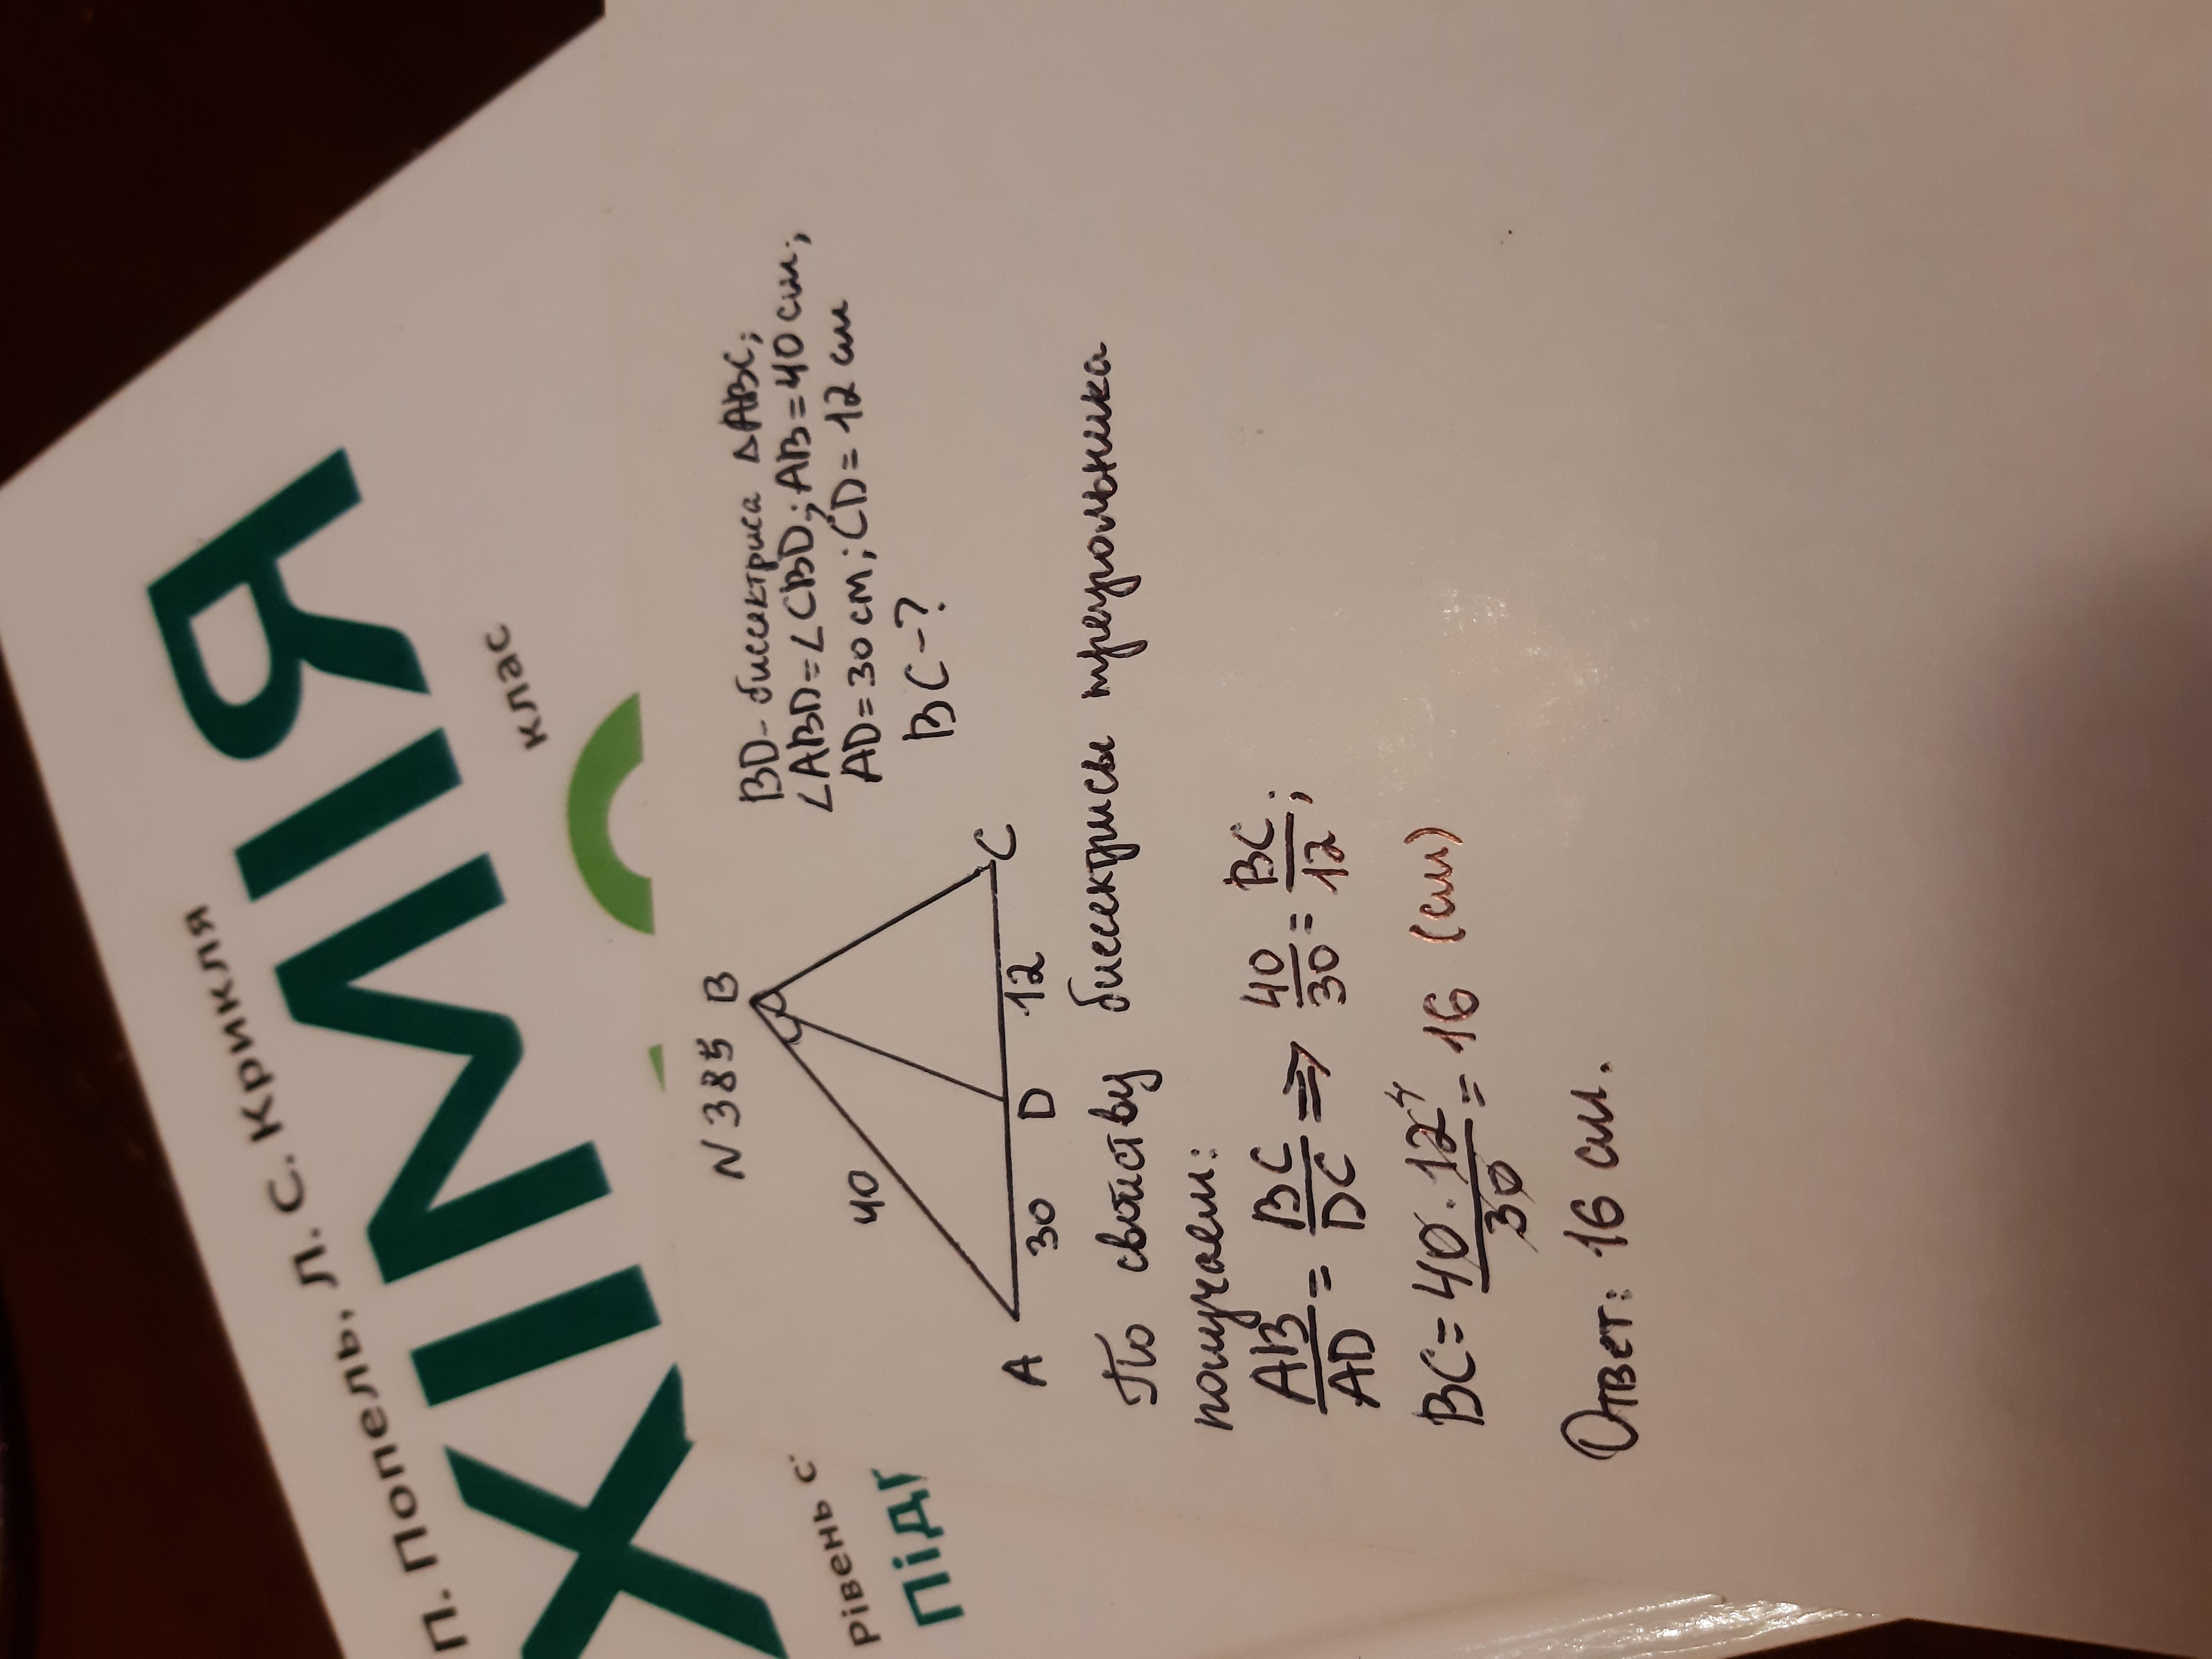 П. Попель, Л. С. Крикля
ХІМІЯ
клас
Рівень с
Під
N 385
BD - биссектриса △ABC;
∠ABD = ∠CBD; AB = 40 см;
AD = 30 см; CD = 12 см
BC - ?
B
40
A
30
D
12
C
По свойству биссектрисы треугольника
получаем:
AB/AD = BC/DC ⇒ 40/30 = BC/12;
BC = 40 · 12⁴/30 = 16 (см)
Ответ: 16 см.